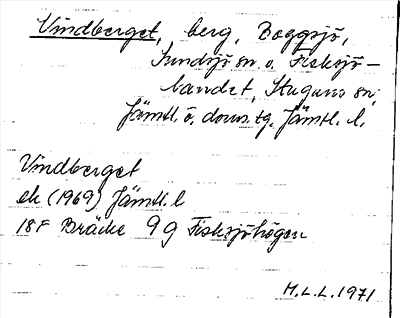 Vindberget, berg, Boggsjö,
Sundsjö sn o. Fisksjö-
landet, Stuguns sn,
Jämtl. ö. doms.tg. Jämtl. l.
Vindberget
ek (1969) Jämtl. l
18F Bräcke 9g Fisksjöhögen
M.L.L. 1971